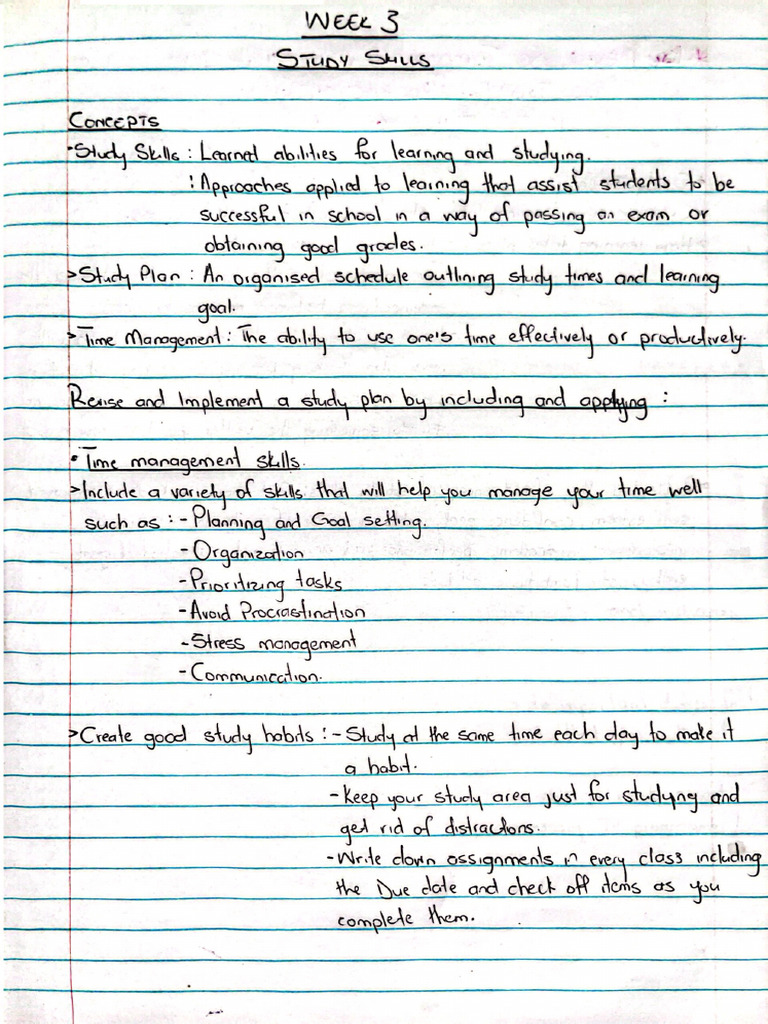 WEEK 3
STUDY SKILLS
CONCEPTS
•Study Skills : Learned abilities for learning and studying.
: Approaches applied to learning that assist students to be
successful in school in a way of passing an exam or
obtaining good grades.
>Study Plan : An organised schedule outlining study times and learning
goal.
>Time Management : The ability to use one's time effectively or productively.
Revise and Implement a study plan by including and applying :
• Time management skills.
>Include a variety of skills that will help you manage your time well
such as : - Planning and Goal setting.
- Organization
- Prioritizing tasks
- Avoid Procrastination
- Stress management
- Communication.
>Create good study habits : - Study at the same time each day to make it
a habit.
- Keep your study area just for studying and
get rid of distractions.
- Write down assignments in every class including
the Due date and check off items as you
complete them.